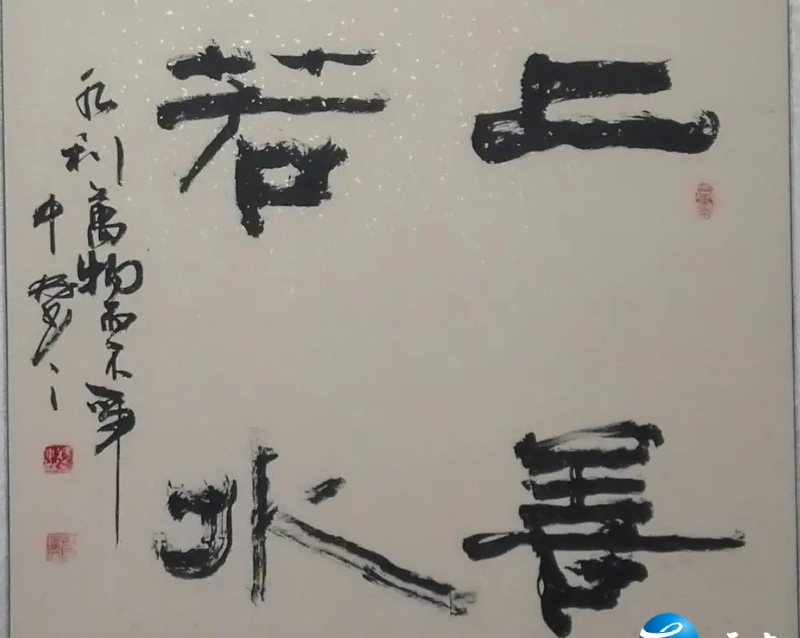 上善
若水
水利萬物而不爭